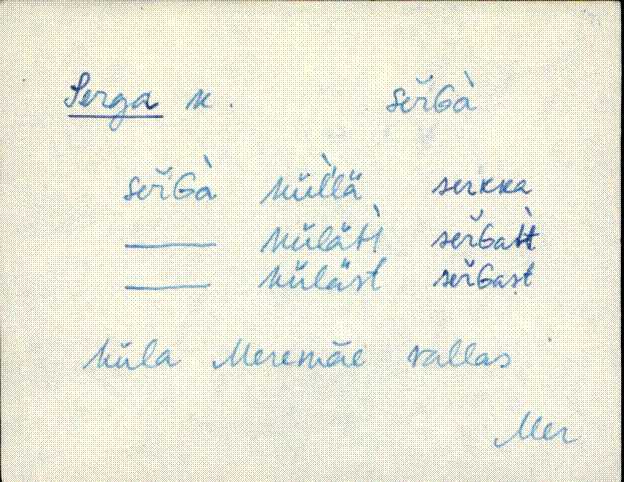 Serga k. seřGà
seřGà küĺlä serkka
—— külätì seřGatt
—— küläst seřGast
küla Meremäe vallas
Mer